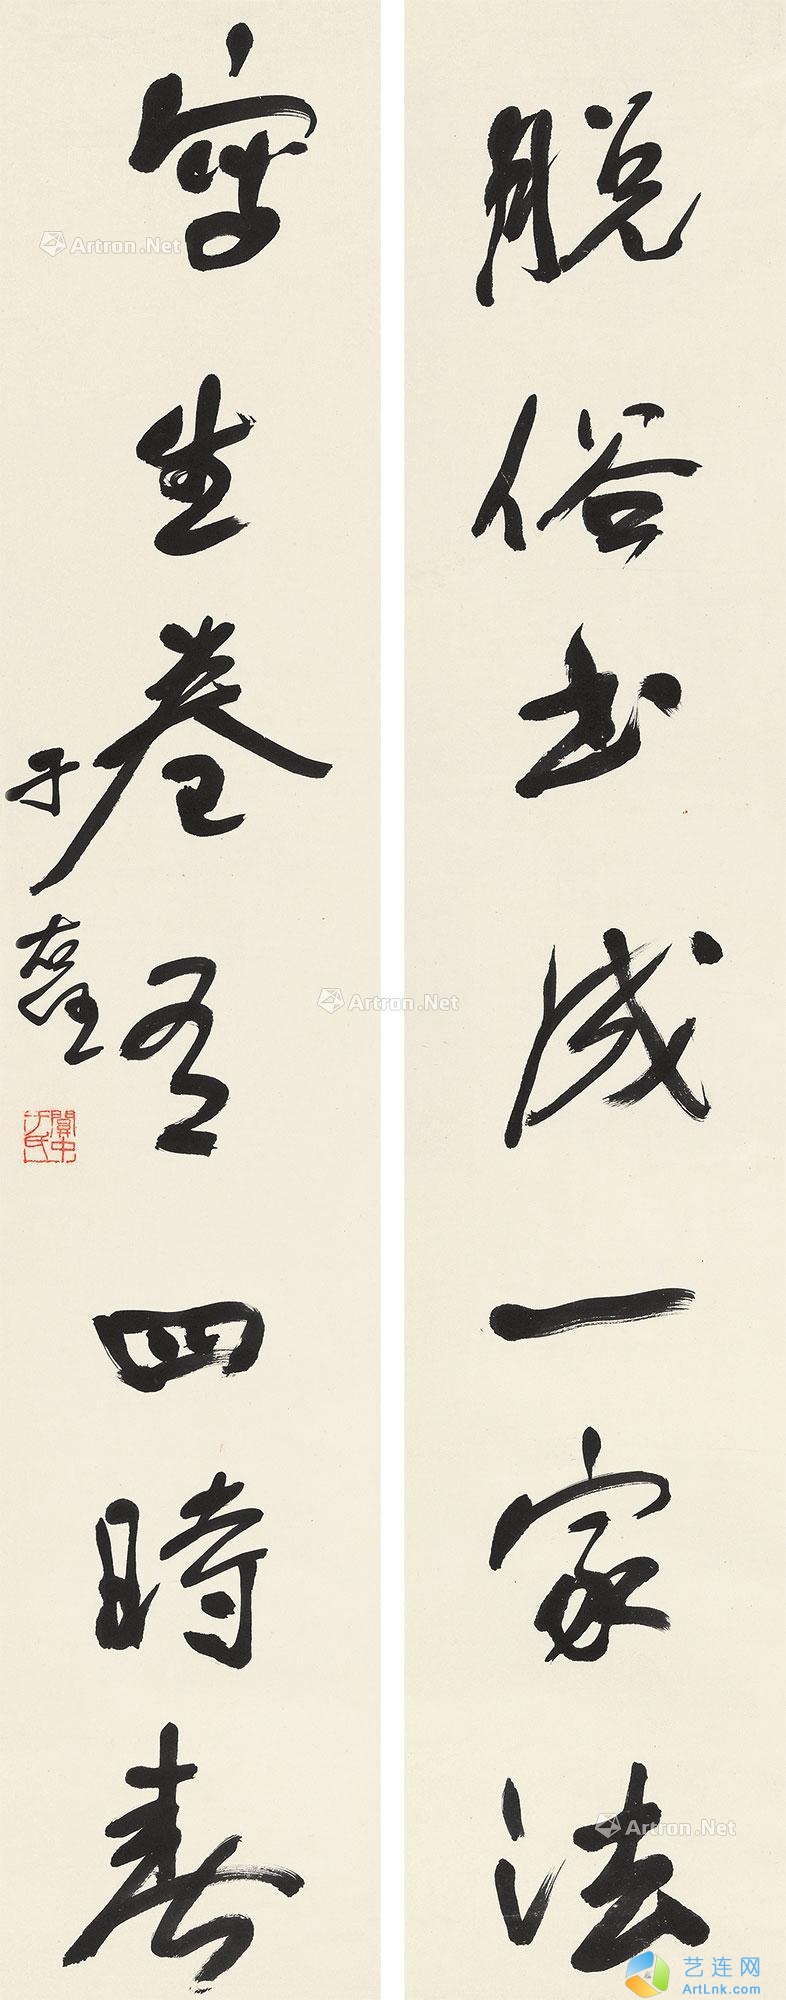 脱俗书成一家法
写生卷有四时春
于右任
關中于氏
Artron.Net
Artron.Net
Artron.Net
艺连网
ArtLnk.com